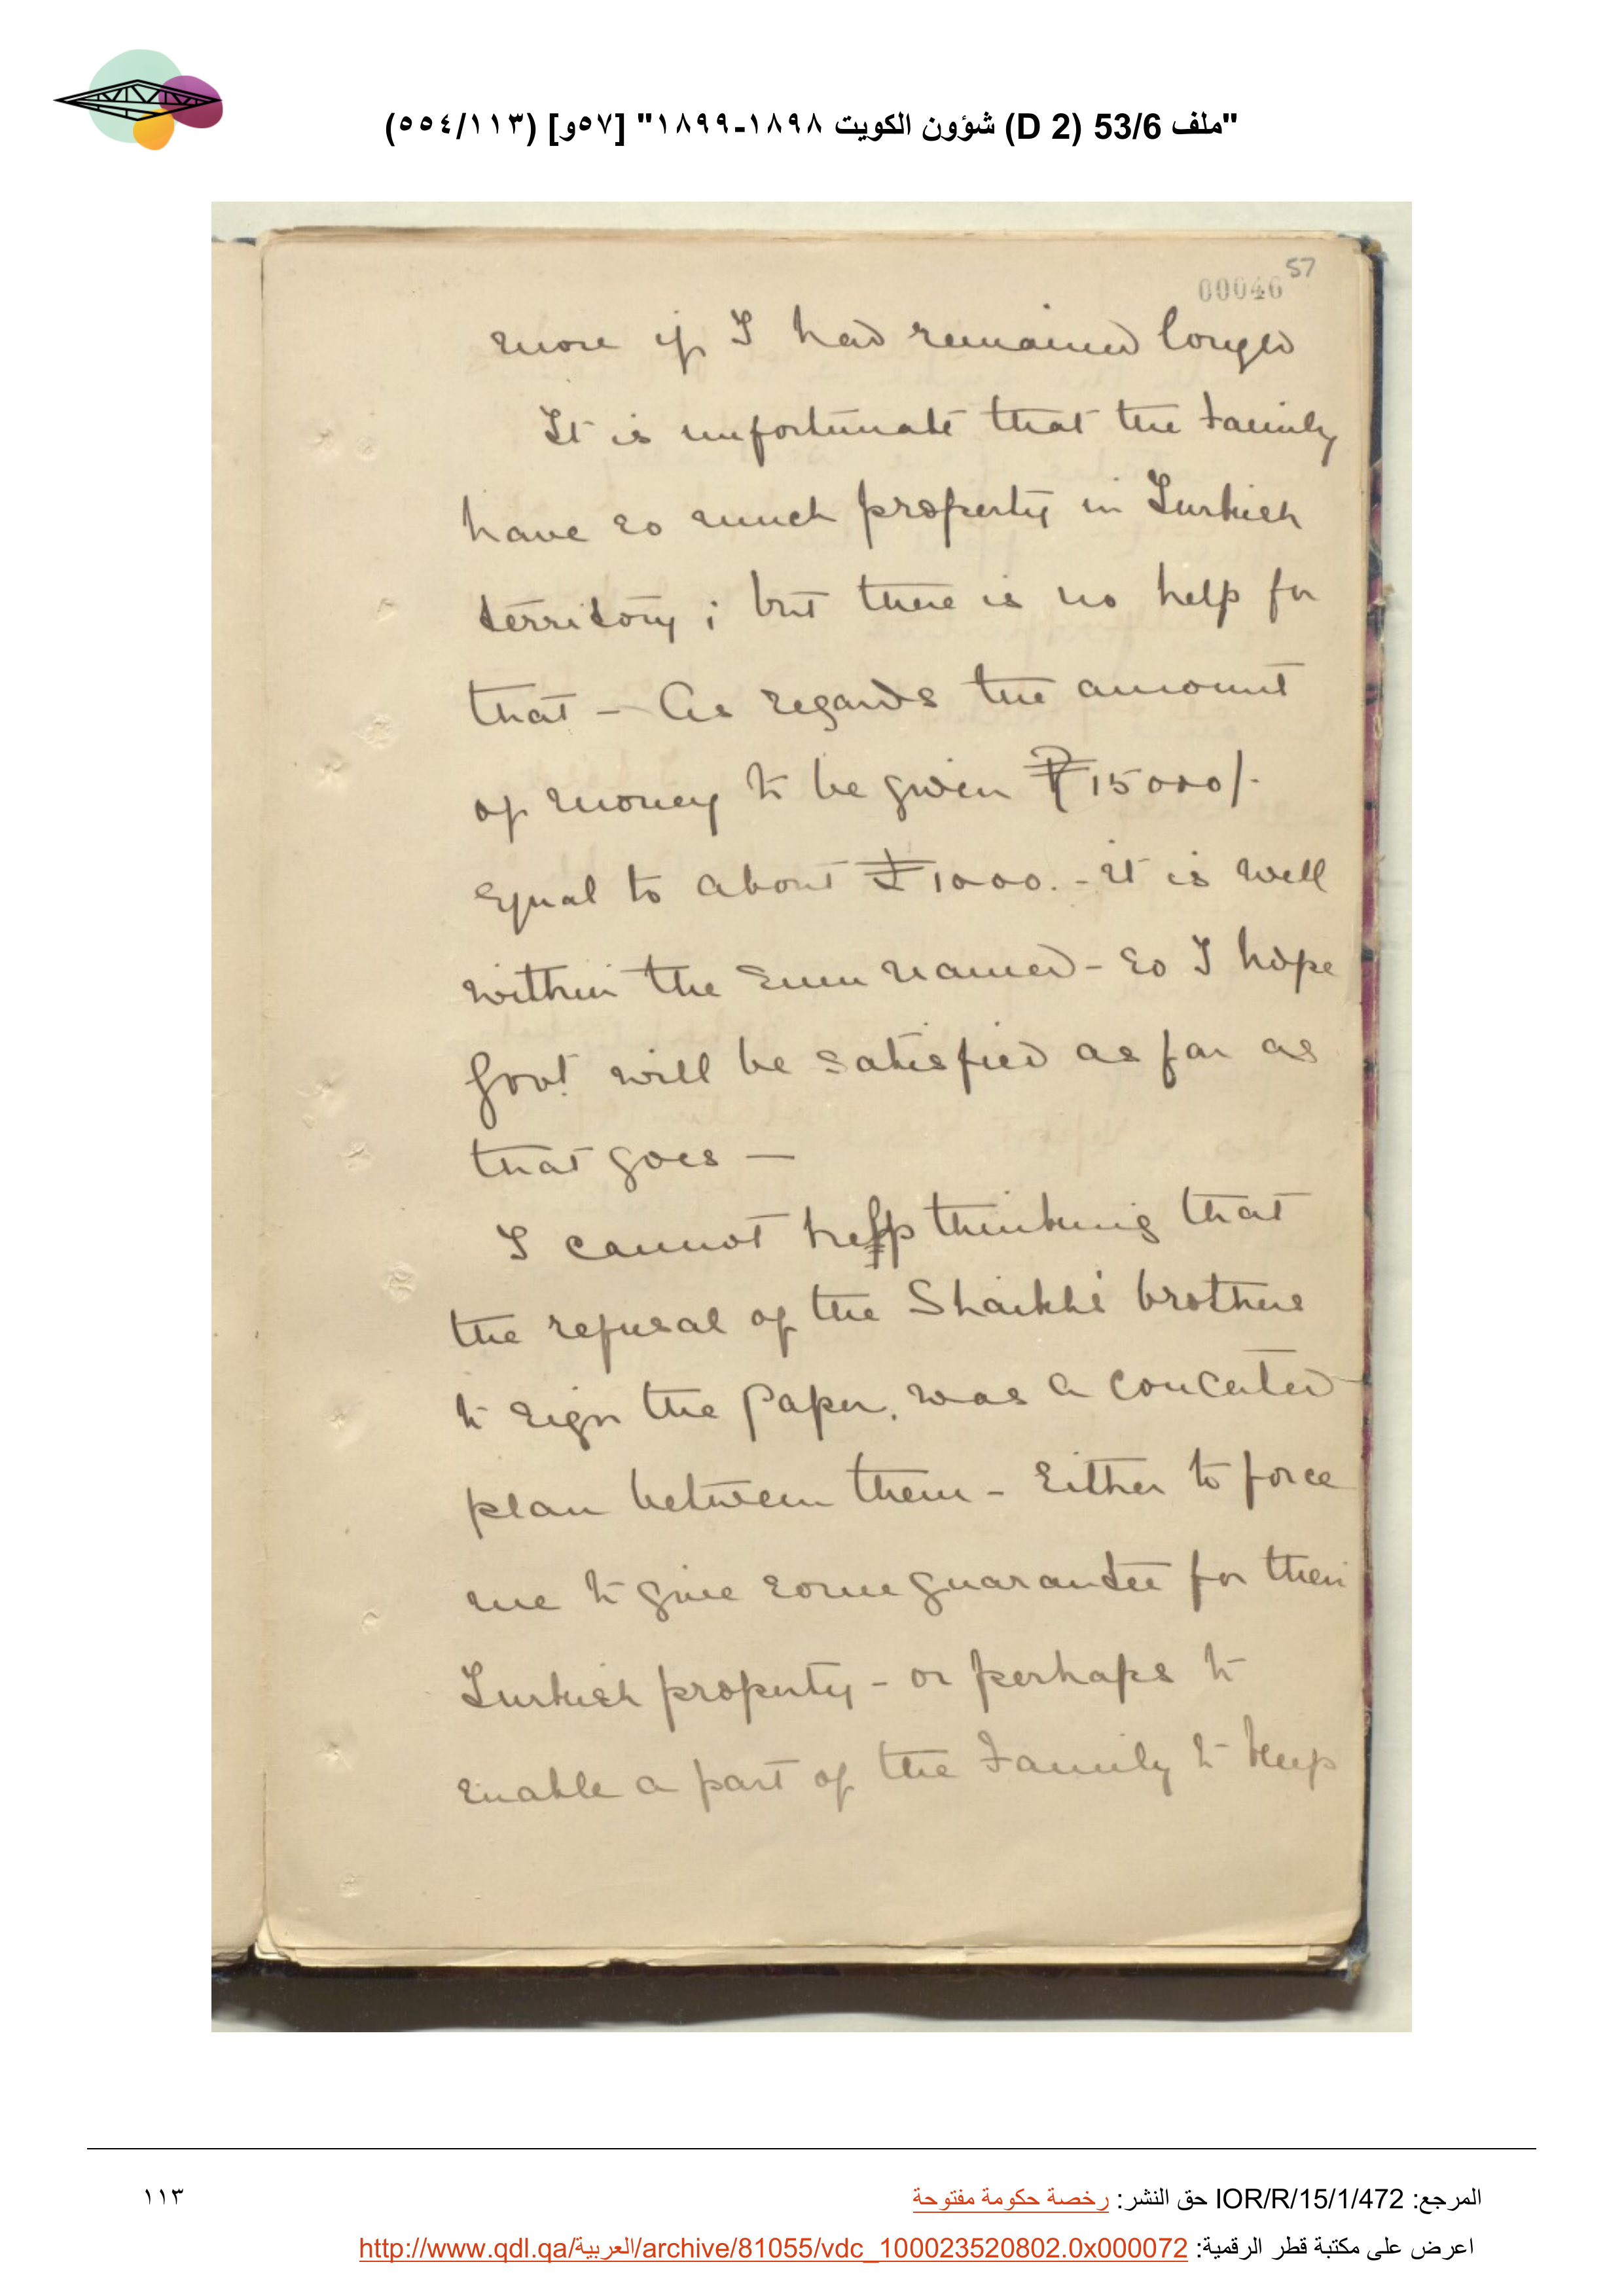 "ملف 53/6 (D 2) شؤون الكويت ١٨٩٨-١٨٩٩" [٥٧و] (٥٥٤/١١٣)
57
00046
more if I had remained longer
It is unfortunate that the Family
have so much property in Turkish
territory ; but there is no help for
that - As regards the amount
of money to be given ₹15000/-
equal to about £1000. - it is well
within the sum named - so I hope
Govt will be satisfied as far as
that goes —
I cannot help thinking that
the refusal of the Shaikhs' brothers
to sign the paper, was a concerted
plan between them - Either to force
me to give some guarantee for their
Turkish property - or perhaps to
enable a part of the Family to keep
المرجع: IOR/R/15/1/472 حق النشر: رخصة حكومة مفتوحة
١١٣
اعرض على مكتبة قطر الرقمية: http://www.qdl.qa/العربية/archive/81055/vdc_100023520802.0x000072